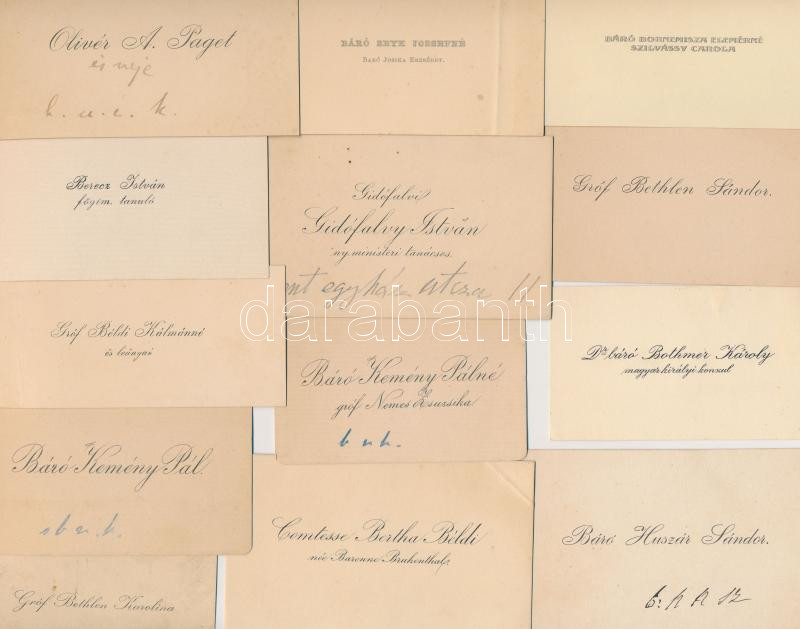 Olivér A. Paget
és neje
b. u. é. k.
BÁRÓ
BÁRÓ JOSIKA ERZSÉBET.
BÁRÓ BORNEMISZA ELEMÉRNÉ
SZILVÁSSY CAROLA
Berecz István
főgim. tanuló
Gidófalvi
Gidófalvy István
ny. ministeri tanácsos.
egyház utcza 11
Gróf Bethlen Sándor.
Gróf Béldi Kálmánné
és leányai
Báró Kemény Pálné
gróf Nemes Zsuzsika
b u k.
Dr. báró Bothmer Károly
magyar királyi konzul
Báró Kemény Pál.
Comtesse Bertha Béldi
née Baronne Brukenthal
Báró Huszár Sándor.
Gróf Bethlen Karolina
darabanth